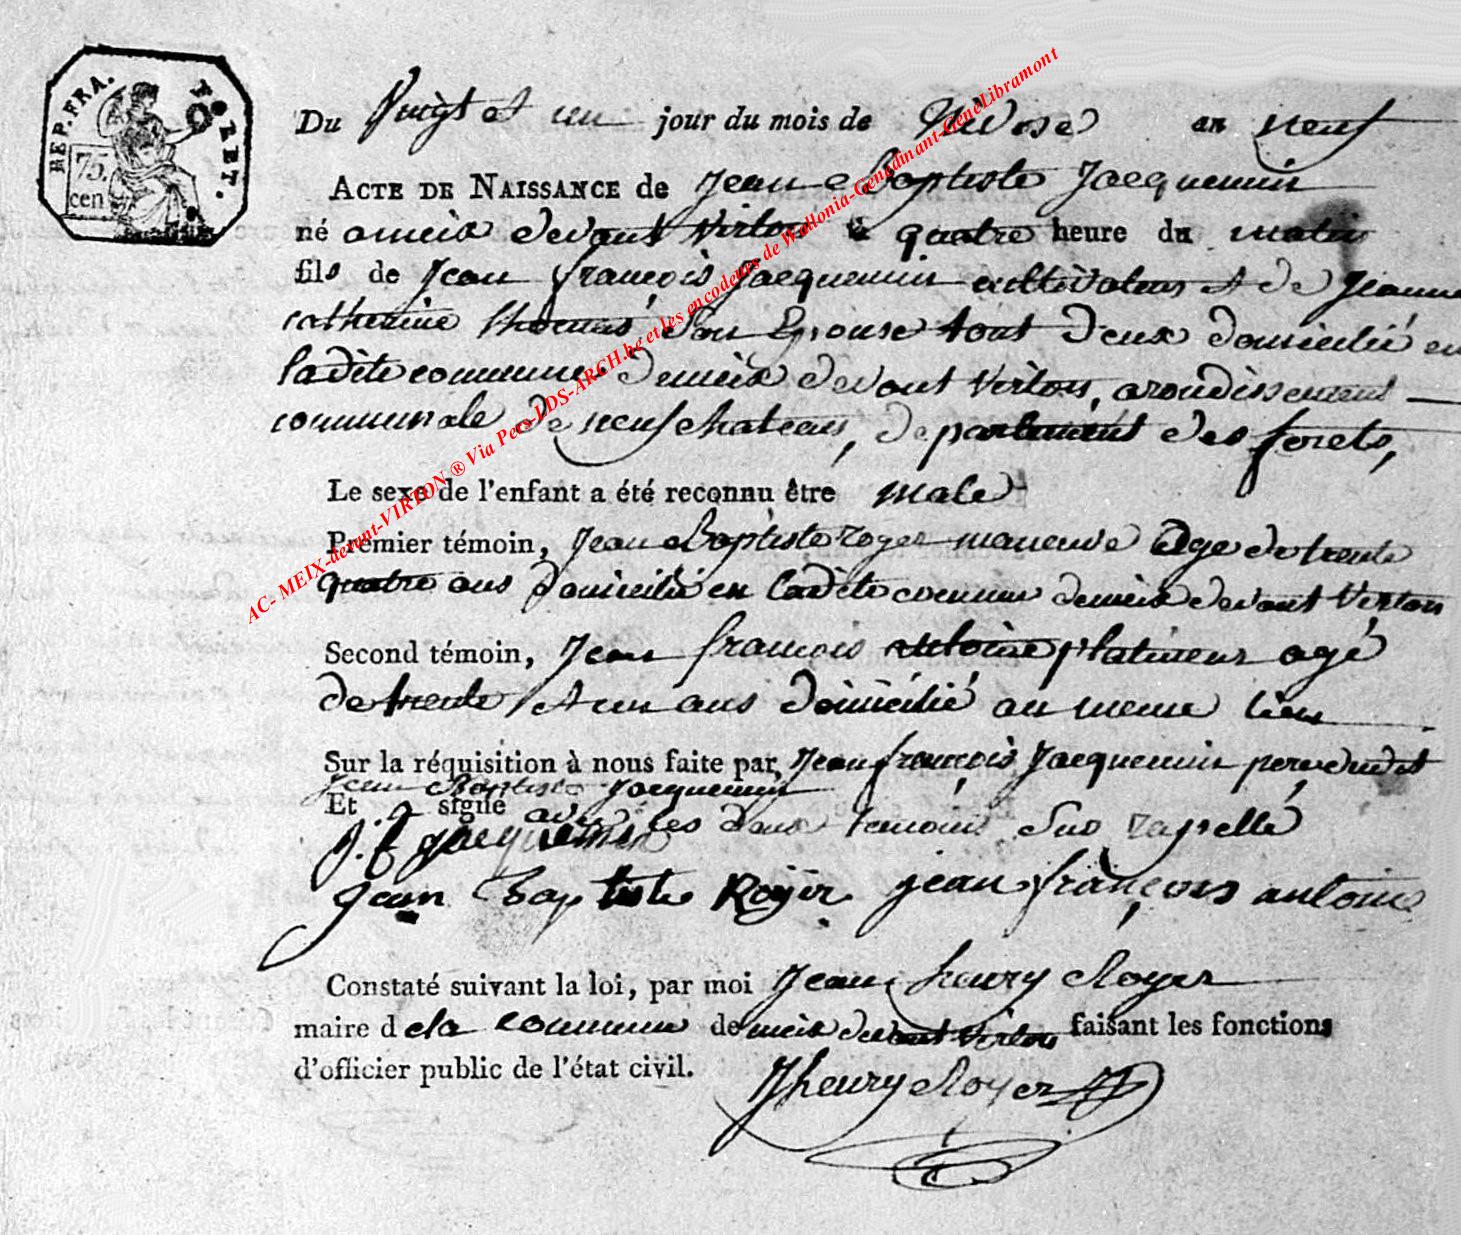 REP. FRA.
FORET.
75.
cen
Du Vuigt et un jour du mois de Nivose an neuf
ACTE DE NAISSANCE de Jean Baptiste Jacquemin
né a meix devant Virton à quatre heure du matin
fils de Jean françois Jacquemin cultivateur et de Jeanne
catherine thomas son Epouse tout deux domicilié en
ladite commune demeix devant Virton, arondissement
communale de neufchateau, departement des forets,
Le sexe de l'enfant a été reconnu être male
Premier témoin, Jean Baptiste roger age de trente
quatre ans domicilié en ladite commune demeix devant Virton
Second témoin, Jean francois antoine platineur agé
de trente et un ans domicilié au meme lieu
Sur la réquisition à nous faite par Jean françois Jacquemin pere dudit
Jean Baptiste Jacquemin
Et a signé avec les deux temoins sus rapellé
J. f jacquemin
jean Baptiste Roger jean françois antoine
Constaté suivant la loi, par moi Jean henry Royer
maire de la commune de meix devant virton faisant les fonctions
d'officier public de l'état civil.
Jhenry Royer
AC- MEIX-devant-VIRTON ® Via Pers-LDS-ARCH.be et les encodeurs de Wallonia-Genedinant-GeneLibramont